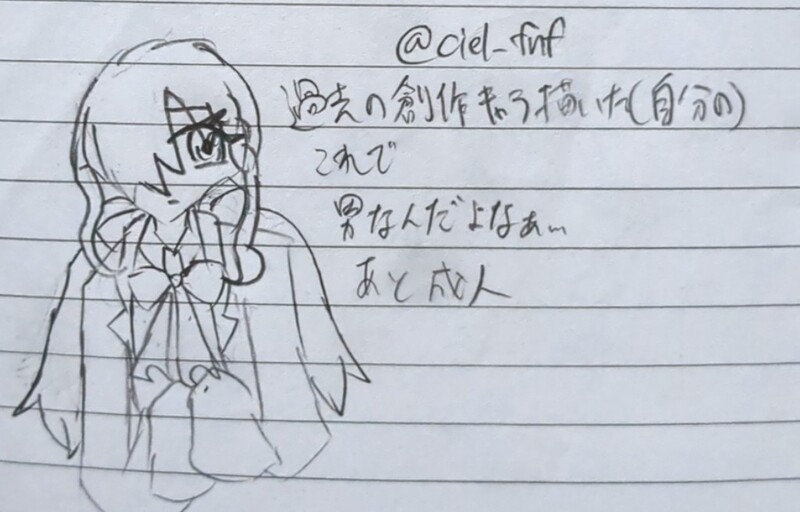 @ciel_fnf
過去の創作キャラ描いた(自分の)
これで
男なんだよなぁ…
あと成人